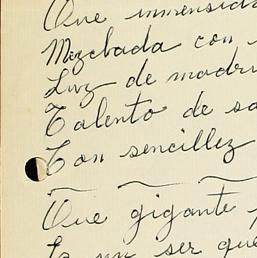 Que inmensida
Mezclada con
Luz de madru
Talento de sa
Con sencillez
Que gigante
Es un ser que